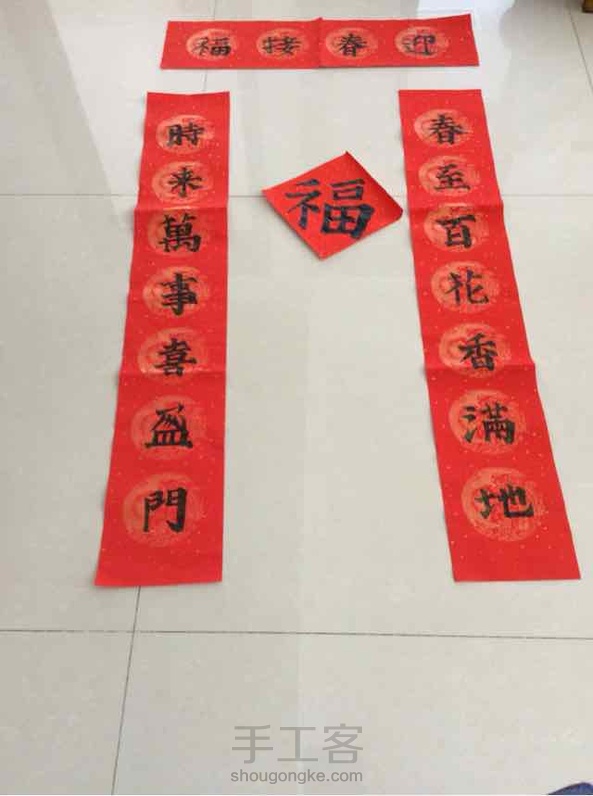 迎春接福
春至百花香滿地
時来萬事喜盈門
福
手工客
shougongke.com